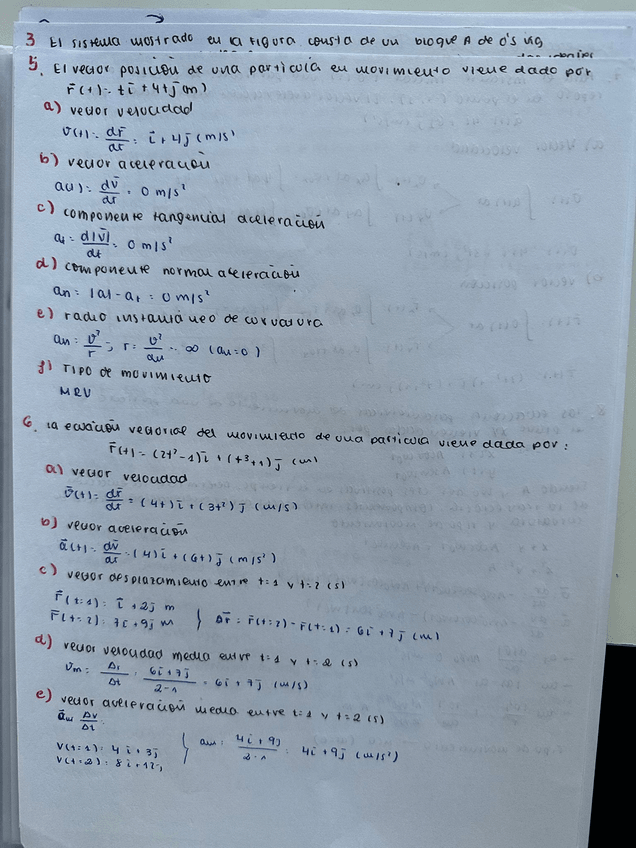 3 El sistema mostrado en la figura consta de un bloque A de 0's kg
5. El vector posición de una partícula en movimiento viene dado por
r̄(t) = tī + 4tj̄ (m)
a) vector velocidad
v(t) = dr̄/dt = ī + 4j̄ (m/s)
b) vector aceleración
a(t) = dv̄/dt = 0 m/s²
c) componente tangencial aceleración
at = d|v̄|/dt = 0 m/s²
d) componente normal aceleración
an = |a| - at = 0 m/s²
e) radio instantáneo de curvatura
an = v²/r ; r = v²/an = ∞ (an = 0)
f) Tipo de movimiento
MRU
6. La ecuación vectorial del movimiento de una partícula viene dada por:
r̄(t) = (2t²-1)ī + (t³+1)j̄ (m)
a) vector velocidad
v̄(t) = dr̄/dt = (4t)ī + (3t²)j̄ (m/s)
b) vector aceleración
ā(t) = dv̄/dt = (4)ī + (6t)j̄ (m/s²)
c) vector desplazamiento entre t=1 y t=2 (s)
r̄(t=1) = ī + 2j̄ m
r̄(t=2) = 7ī + 9j̄ m } Δr̄ = r̄(t=2) - r̄(t=1) = 6ī + 7j̄ (m)
d) vector velocidad media entre t=1 y t=2 (s)
vm = Δr/Δt = 6ī + 7j̄/2-1 = 6ī + 7j̄ (m/s)
e) vector aceleración media entre t=1 y t=2 (s)
ām Δv/Δt =
v(t=1) = 4ī + 3j̄
v(t=2) = 8ī + 12j } am = 4ī + 9j/2-1 = 4ī + 9j̄ (m/s²)